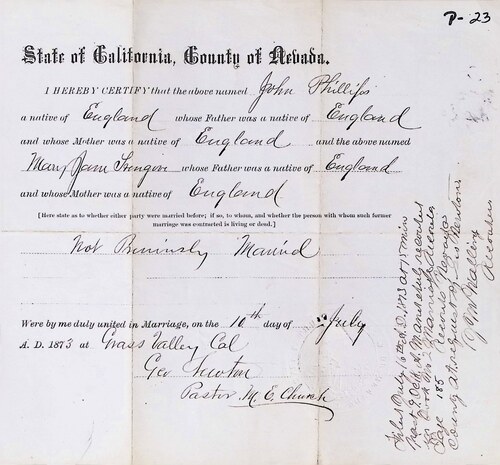 P-23
State of California, County of Nevada.
I HEREBY CERTIFY that the above named John Phillips
a native of England whose Father was a native of England
and whose Mother was a native of England and the above named
Mary Jane whose Father was a native of England
and whose Mother was a native of England
[Here state as to whether either party were married before; if so, to whom, and whether the person with whom such former
marriage was contracted is living or dead.]
Not Married
Were by me duly united in Marriage, on the 10th day of July
A. D. 1873 at Grass Valley Cal
Geo Newton
Pastor M. E. Church
Filed July A.D. 1873 at 15 min
past 9 Oclk A. M. and duly recorded
in Book No 2 Marriage Records
Page 185 Records Nevada
County at request of Geo Newton
Recorder